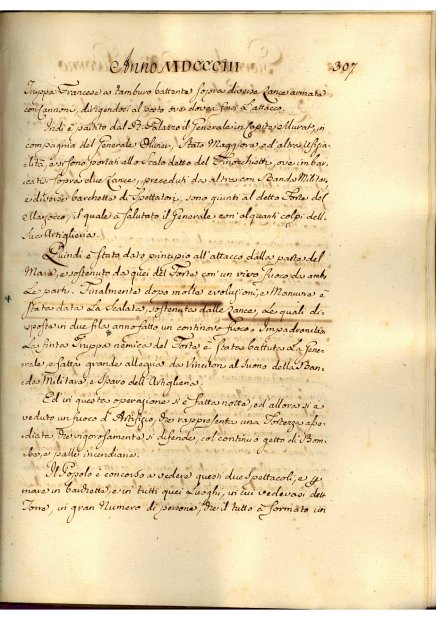 Anno MDCCCIII 307
Truppa Francese a tamburo battente sopra diverse Lance armate
con Cannoni, dirigendosi al posto ove dovea farsi l'attacco.
Indi è partito dal R. Palazzo il Generale in Capite Murat, in
compagnia del Generale Olivier, Stato Maggiore ed altra Uffizia-
lità, e si sono portati allo Scalo detto del Finocchietti, ove imbar-
catisi sopra due Lance, preceduti da altre con Banda Militare,
e diverse barchette di Spettatori, sono giunti al detto Forte del
Marzocco, il quale à salutato il Generale con alquanti colpi della
sua Artiglieria.
Quindi è stato dato principio all'attacco dalla parte del
Mare, e sostenuto da quei del Forte con un vivo fuoco da ambe
le parti. Finalmente dopo molte evoluzioni, e Manuvre è
stata data la Scalata, sostenuta dalle Lance, le quali di-
sposte in due fila anno fatto un continovo fuoco. Impadronitasi
la finta Truppa nemica del Forte è stata battuta la Gene-
rale, e fatta grande allegria da Vincitori al suono della Ban-
da Militare, e sparo dell'Artiglieria.
Ed in questa operazione si è fatta notte, ed allora si è
veduto un fuoco d'Artifizio, che rappresenta una Fortezza asse-
diata, che vigorosamente si difende, col continuo getto di Bom-
be, e palle incendiarie.
Il Popolo è concorso a vedere questi due Spettacoli, e per
mare in barchette, e in tutti quei Luoghi, in cui vedevasi detta
Torre, in gran Numero di persone, che il tutto à formato un